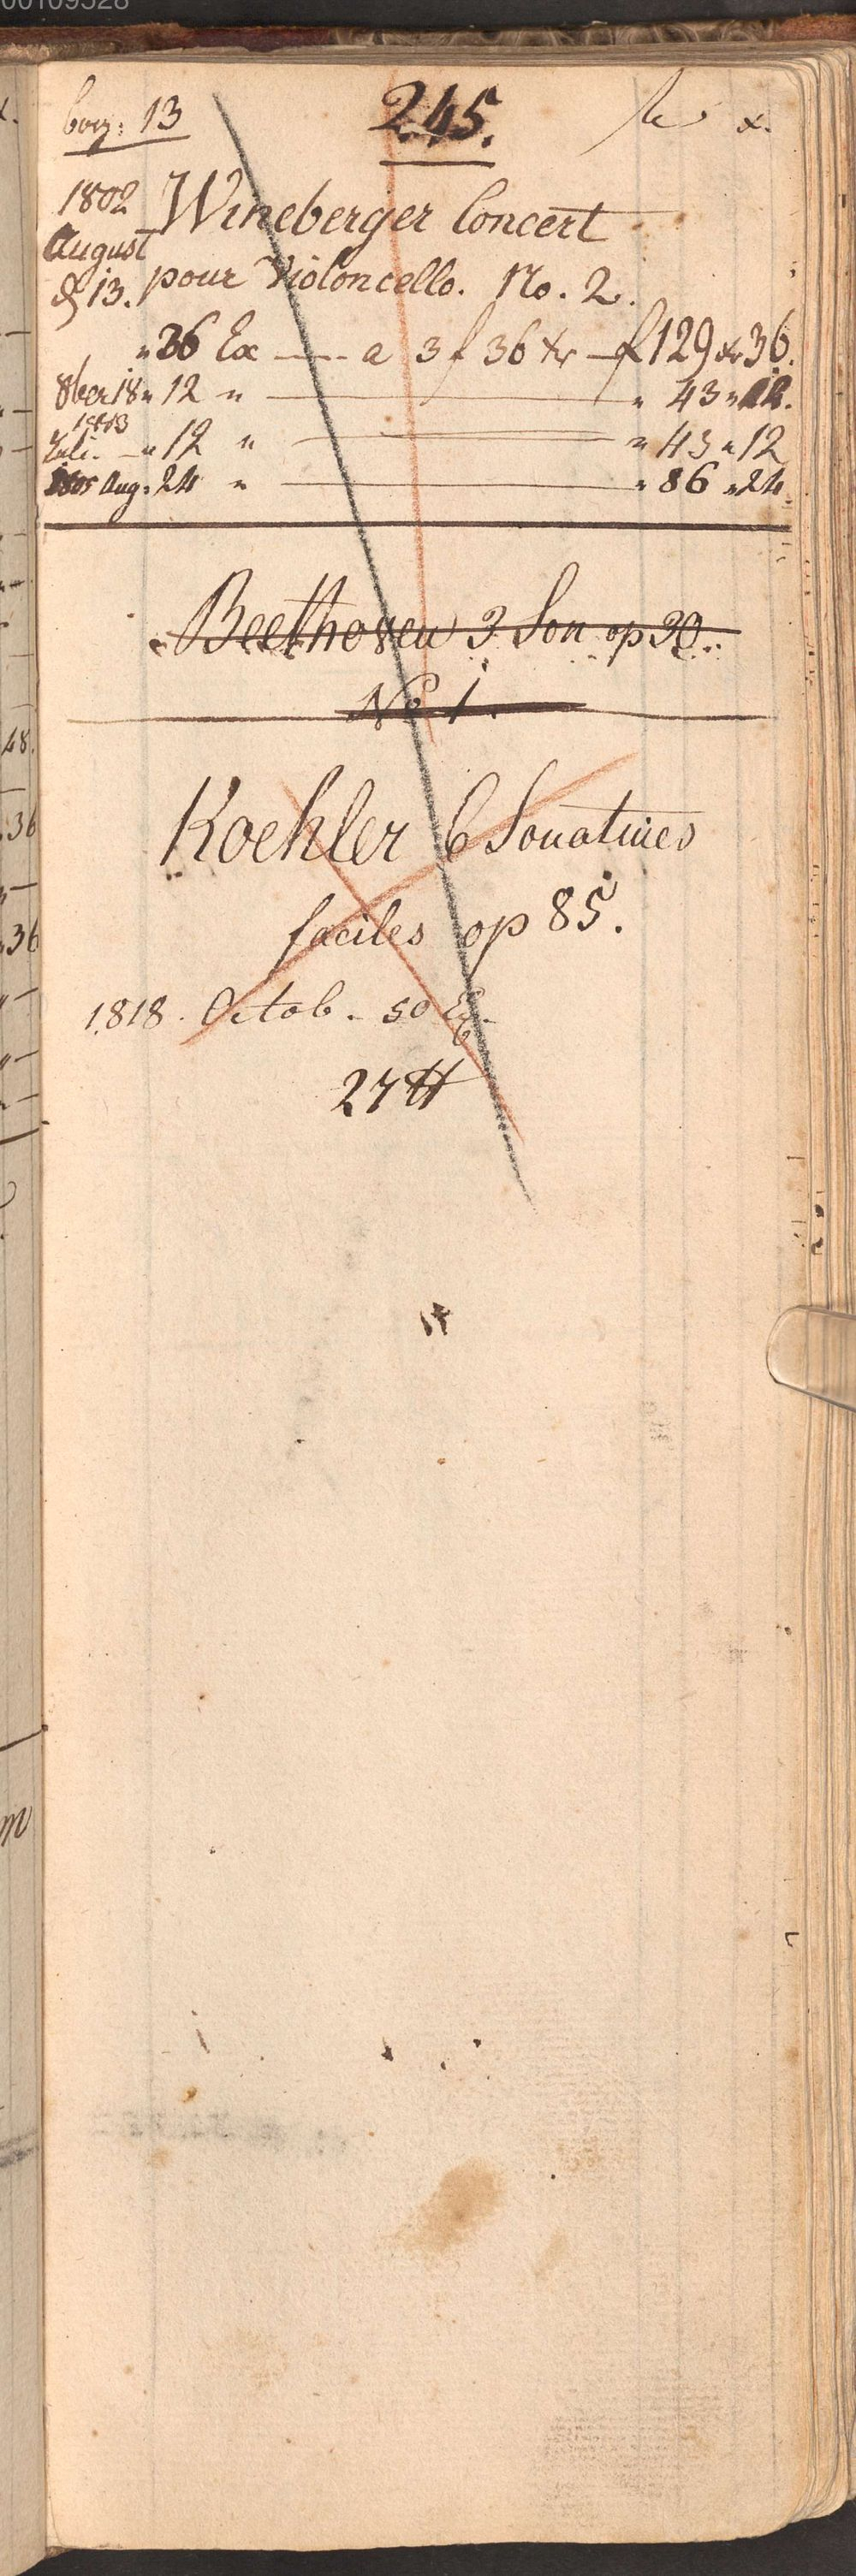 00109528
bog: 13 245. x.
1802 Wineberger Concert
August
d 13. pour Violoncello. No. 2.
" 36 Ex — a 3 f 36 xr — f 129 xr 36.
8ber 18 " 12 " — " 43 " 12.
1803
Juli. — " 12 " — " 43 " 12
1805 Aug: 24 " — " 86 " 24.
Beethoven 3 Son op 30.
No 1.
Koehler 6 Sonatines
faciles op 85.
1818. Octob. 50 Ex.
27
48.
36
36
m